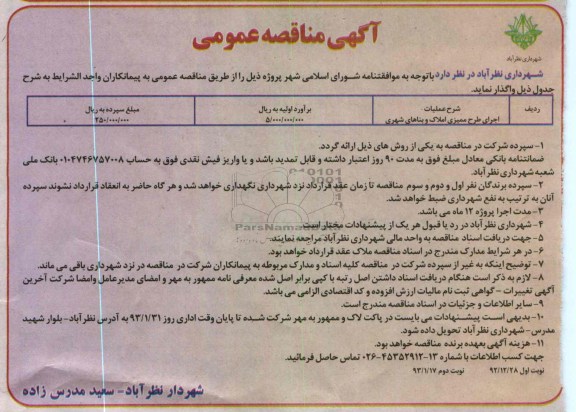 آگهی مناقصه عمومی
شهرداری نظرآباد
شهرداری نظرآباد در نظر دارد باتوجه به موافقتنامه شورای اسلامی شهر پروژه ذیل را از طریق مناقصه عمومی به پیمانکاران واجد الشرایط به شرح
جدول ذیل واگذار نماید.
ردیف شرح عملیات برآورد اولیه به ریال مبلغ سپرده به ریال
اجرای طرح ممیزی املاک و بناهای شهری ۵/۰۰۰/۰۰۰/۰۰۰ ۲۵۰/۰۰۰/۰۰۰
۱- سپرده شرکت در مناقصه به یکی از روش های ذیل ارائه گردد.
ضمانتنامه بانکی معادل مبلغ فوق به مدت ۹۰ روز اعتبار داشته و قابل تمدید باشد و یا واریز فیش نقدی فوق به حساب ۰۱۰۴۷۴۶۷۵۷۰۰۸ بانک ملی
شعبه شهرداری نظرآباد
۲- سپرده برندگان نفر اول و دوم و سوم مناقصه تا زمان عقد قرارداد نزد شهرداری نگهداری خواهد شد و هر گاه حاضر به انعقاد قرارداد نشوند سپرده
آنان به ترتیب به نفع شهرداری ضبط خواهد شد.
۳- مدت اجرا پروژه ۱۲ ماه می باشد.
۴- شهرداری نظرآباد در رد یا قبول هر یک از پیشنهادات مختار است
۵- جهت دریافت اسناد مناقصه به واحد مالی شهرداری نظرآباد مراجعه نمایند.
۶- در هر شرایط مدارک مندرج در اسناد مناقصه ملاک عقد قرارداد خواهد بود.
۷- توضیح اینکه به غیر از سپرده شرکت در مناقصه کلیه اسناد و مدارک مربوطه به پیمانکاران شرکت در مناقصه در نزد شهرداری باقی می ماند.
۸- لازم به ذکر است هنگام دریافت اسناد داشتن اصل رتبه با کپی برابر اصل شده معرفی نامه ممهور به مهر و امضای مدیرعامل وامضا شرکت آخرین
آگهی تغییرات - گواهی ثبت نام مالیات ارزش افزوده و کد اقتصادی الزامی می باشد.
۹- سایر اطلاعات و جزئیات در اسناد مناقصه مندرج است.
۱۰- بدیهی است پیشنهادات می بایست در پاکت لاک و ممهور به مهر شرکت شده تا پایان وقت اداری روز ۹۳/۱/۳۱ به آدرس نظرآباد- بلوار شهید
مدرس-شهرداری نظرآباد تحویل داده شود.
۱۱- هزینه آگهی بعهده برنده مناقصه خواهد بود.
جهت کسب اطلاعات با شماره ۱۳-۴۵۳۵۲۹۱۲-۰۲۶ تماس حاصل فرمائید.
نوبت اول ۹۲/۱۲/۲۸ نوبت دوم ۹۳/۱/۱۷
شهردار نظرآباد- سعید مدرس زاده